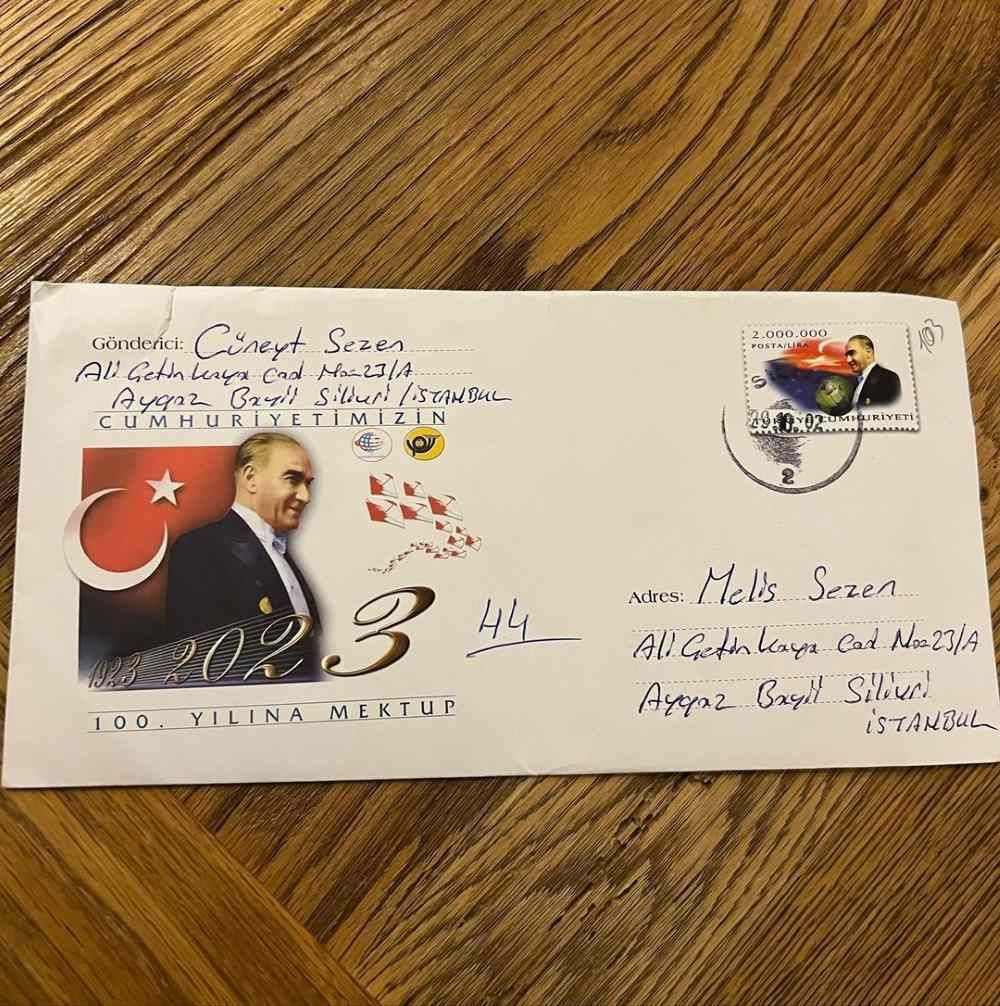 Gönderici: Cüneyt Sezen
Ali Çetin Kaya Cad No=23/A
Aygaz Bayii Silivri / İSTANBUL
CUMHURİYETİMİZİN
1923 2023
100. YILINA MEKTUP
44
2.000.000
POSTA/LİRA
CUMHURİYETİ
29.10.02
2
103
Adres: Melis Sezen
Ali Çetin Kaya Cad No=23/A
Aygaz Bayii Silivri
İSTANBUL